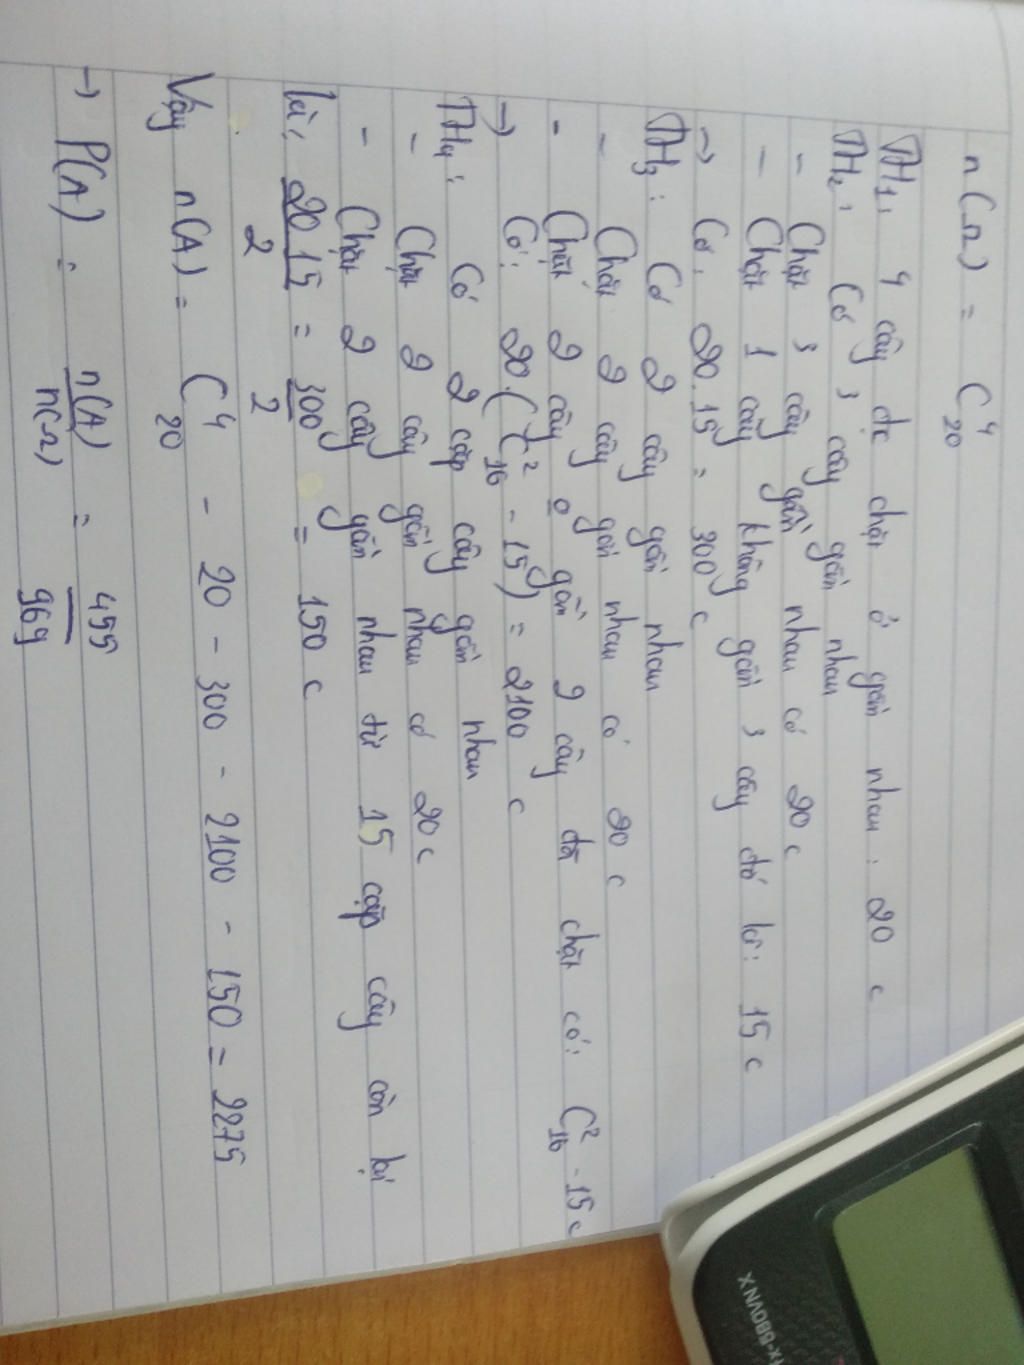 n(Ω) = C⁴₂₀
TH₁: 4 cây đc chặt ở gần nhau: 20 c
TH₂: Có 3 cây gần nhau
- Chặt 3 cây gần nhau có 20 c
- Chặt 1 cây không gần 3 cây đó là: 15 c
→ Có: 20.15 = 300 c
TH₃: Có 2 cây gần nhau
- Chặt 2 cây gần nhau có 20 c
- Chặt 2 cây o gần 2 cây đã chặt có: C²₁₆ - 15 c
→ Có: 20.(C²₁₆ - 15) = 2100 c
TH₄: Có 2 cặp cây gần nhau
- Chặt 2 cây gần nhau có 20 c
- Chặt 2 cây gần nhau từ 15 cặp cây còn lại
là: 20.15/2 = 300/2 = 150 c
Vậy n(A) = C⁴₂₀ - 20 - 300 - 2100 - 150 = 2275
→ P(A) = n(A)/n(Ω) = 455/969
fx-580VNX